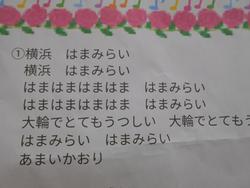 ①横浜　はまみらい
横浜　はまみらい
はまはまはまはま　はまみらい
はまはまはまはま　はまみらい
大輪でとてもうつしい　大輪でとてもう
はまみらい　はまみらい
あまいかおり